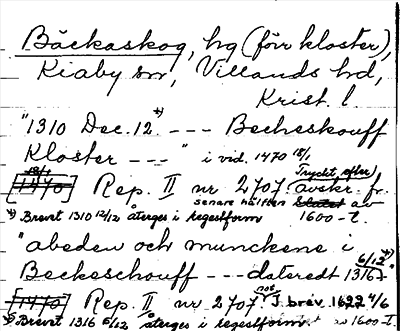 Bäckaskog, hg (förr kloster),
Kiaby sn, Villands hd,
Krist. l.
"1310 Dec. 12.*) --- Becheskouff
Kloster ---" i vid. 1470 18/1
[1470] Rep. II nr 2707 Tryckt efter avskr. fr.
*) Brevet 1310 12/12 återges i regestform senare hälften av 1600-t.
"abeden och munckene i
Beckeschouff --- dateredt 1316" 6/12 *)
[1470] Rep. II nr 2707 not. I brev 1622 4/6
*) Brevet 1316 6/12 återges i regestform 1600-t.